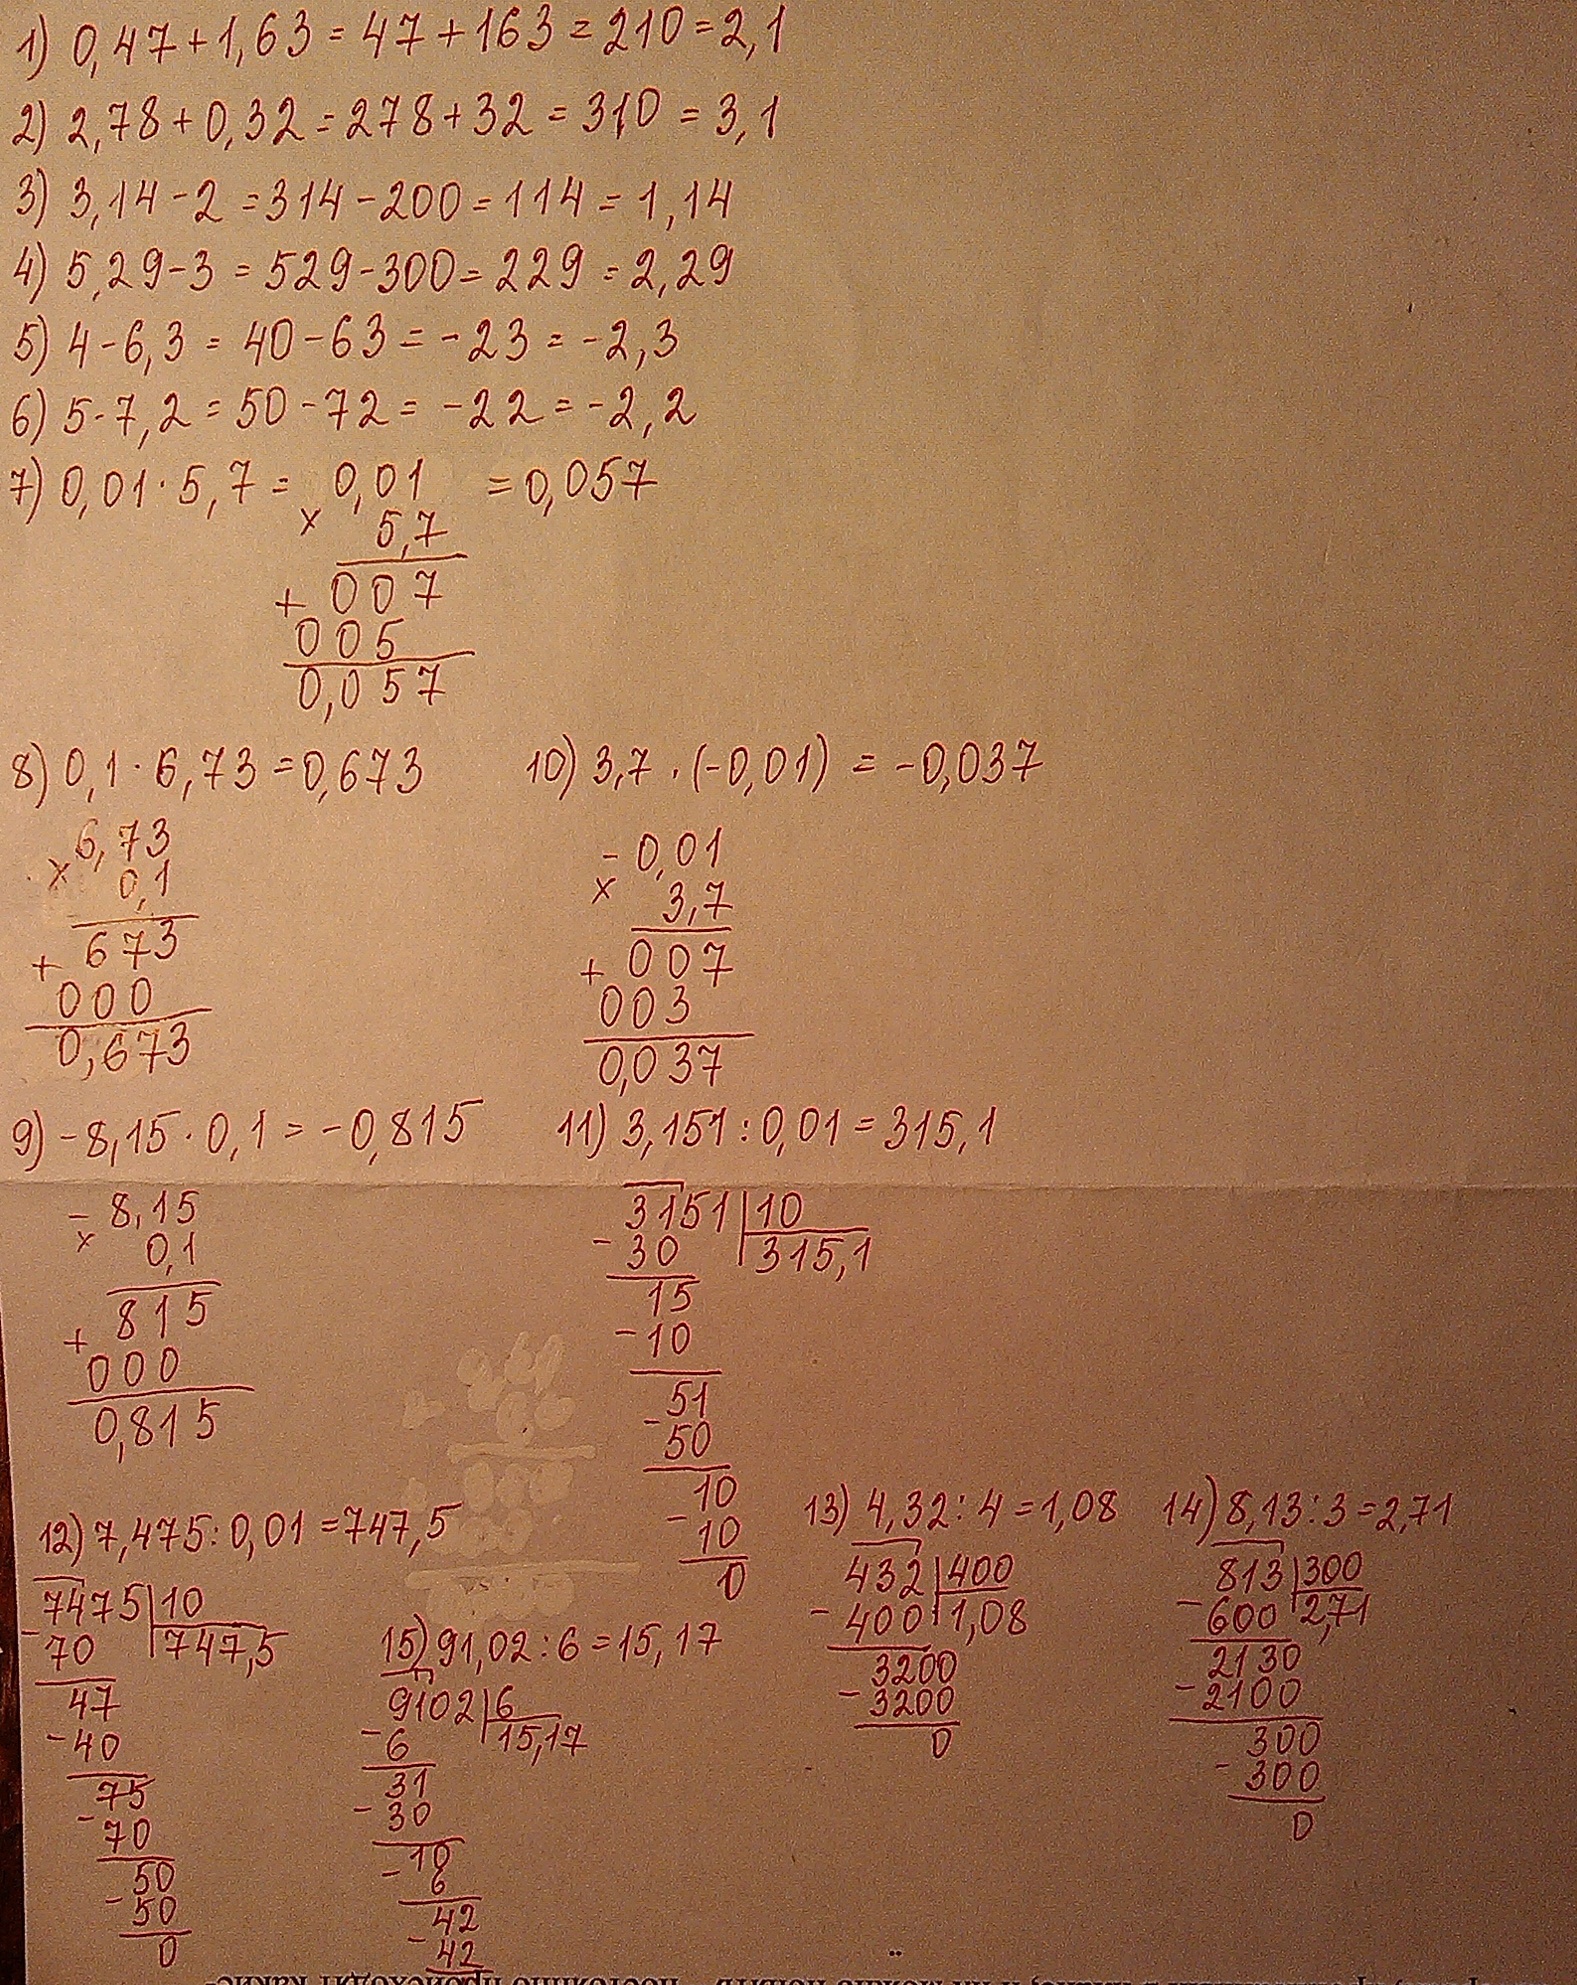 1) 0,47+1,63=47+163=210=2,1
2) 2,78+0,32=278+32=310=3,1
3) 3,14-2=314-200=114=1,14
4) 5,29-3=529-300=229=2,29
5) 4-6,3=40-63=-23=-2,3
6) 5-7,2=50-72=-22=-2,2
7) 0,01·5,7= 0,01 =0,057
× 5,7
+ 007
005
0,057
8) 0,1·6,73=0,673
6,73
× 0,1
+ 673
000
0,673
10) 3,7·(-0,01)=-0,037
-0,01
× 3,7
+ 007
003
0,037
9) -8,15·0,1=-0,815
-8,15
× 0,1
+ 815
000
0,815
11) 3,151:0,01=315,1
3151|10
-30 315,1
15
-10
51
-50
10
-10
0
12) 7,475:0,01=747,5
7475|10
-70 747,5
47
-40
75
-70
50
-50
0
15) 91,02:6=15,17
9102|6
-6 15,17
31
-30
10
-6
42
-42
13) 4,32:4=1,08
432|400
-400 1,08
3200
-3200
0
14) 8,13:3=2,71
813|300
-600 2,71
2130
-2100
300
-300
0